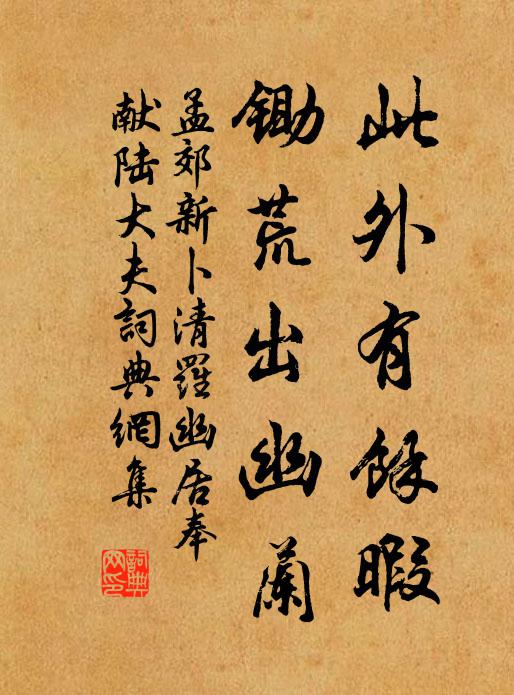 此外有餘暇
鋤荒出幽蘭
孟郊新卜清羅幽居奉
献陆大夫詞典網集
詞典
网印